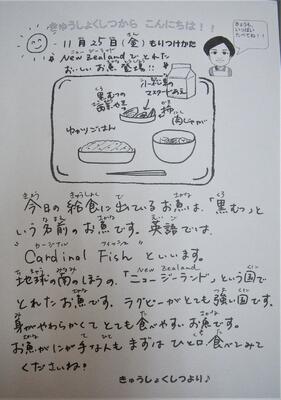 きゅうしょくしつから こんにちは!!
11月25日(金) もりつけかた
New Zealandでとれた
おいしいお魚登場!!
黒むつの
柿
肉じゃが
ゆかりごはん
今日の給食に出ているお魚は、「黒むつ」と
いう名前のお魚です。英語では、
"Cardinal Fish"といいます。
地球の南のほうの、「ニュージーランド」という国で
とれたお魚です。ラグビーがとても強い国です。
身がやわらかくてとても食べやすいお魚です。
お魚がにが手な人もまずはひと口、食べてみて
くださいね!
きゅうしょくしつより♪